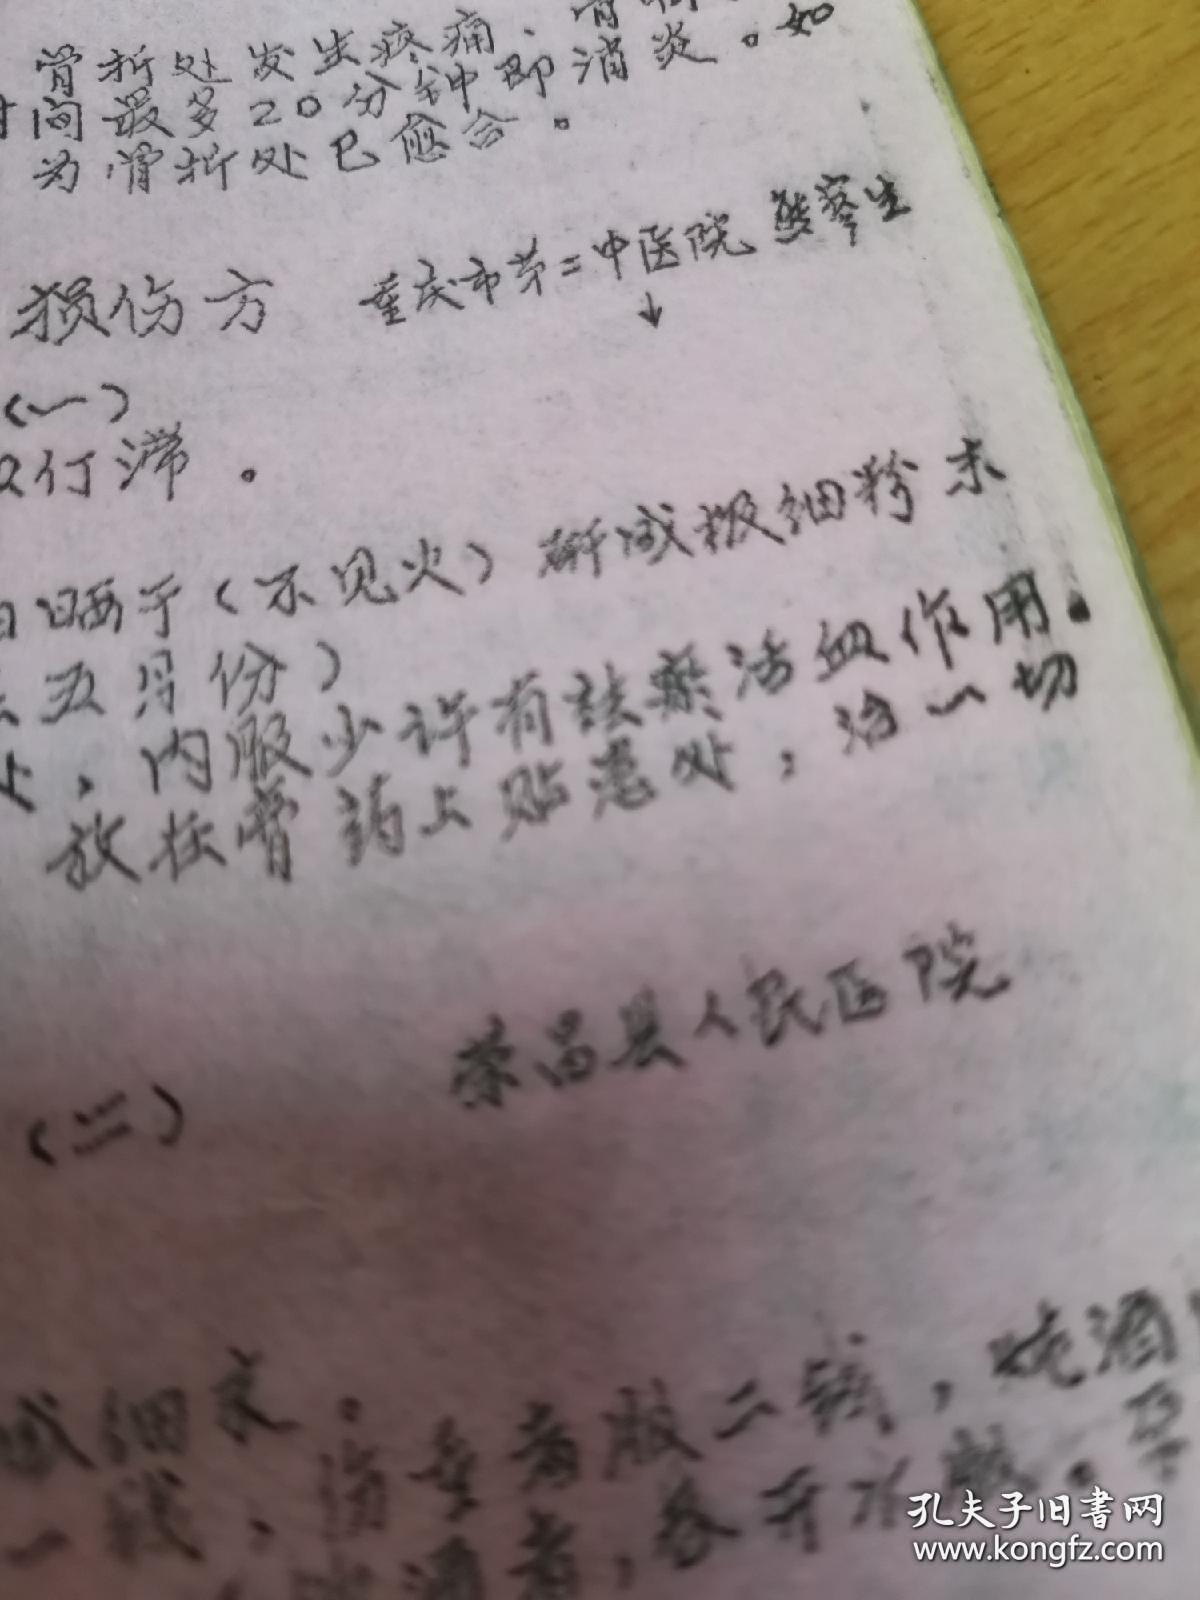 骨折处发生疼痛、
时间最多20分钟即消炎。如
为骨折处已愈合。
损伤方 重庆市第二中医院 熊寥生
↓
(一)
行滞。
日晒干(不见火)研成极细粉末
五月份)
,内服少许有祛瘀活血作用.
放在膏药上贴患处,治一切
(二) 荣昌县人民医院
成细末。
一钱,伤重者服二钱,炖酒
酒者,冬开水服。
孔夫子旧书网
www.kongfz.com